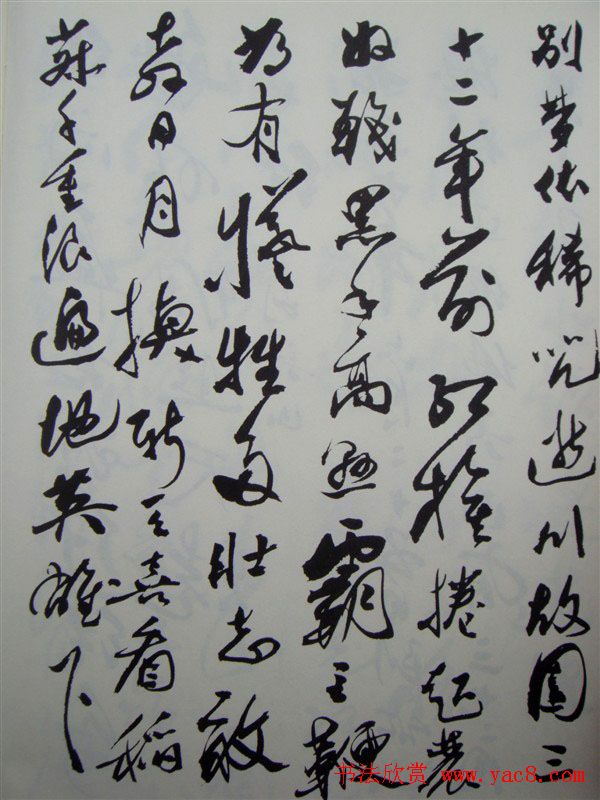 别夢依稀咒逝川故園三
十二年前红旗捲起農
奴戟黑手高悬霸主鞭
为有犧牲多壮志敢
教日月换新天喜看稻
菽千重浪遍地英雄下
书法欣赏 www.yac8.com